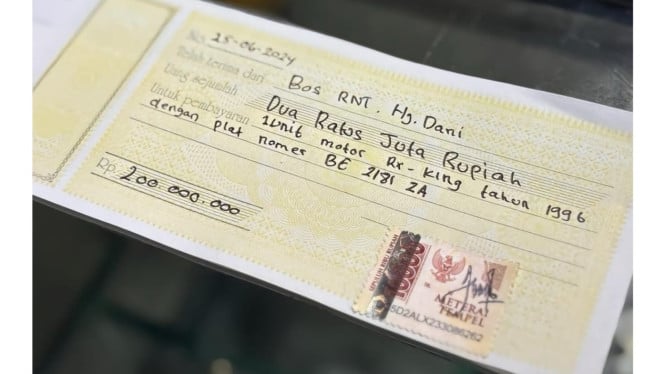 No. 25-06-2024
Telah terima dari Bos RNT. Hj. Dani
Uang sejumlah Dua Ratus Juta Rupiah
Untuk pembayaran 1 Unit motor Rx-King tahun 1996
dengan plat nomer BE 2181 ZA
Rp. 200.000.000
10000
METERAI
TEMPEL
5D2ALX233086262